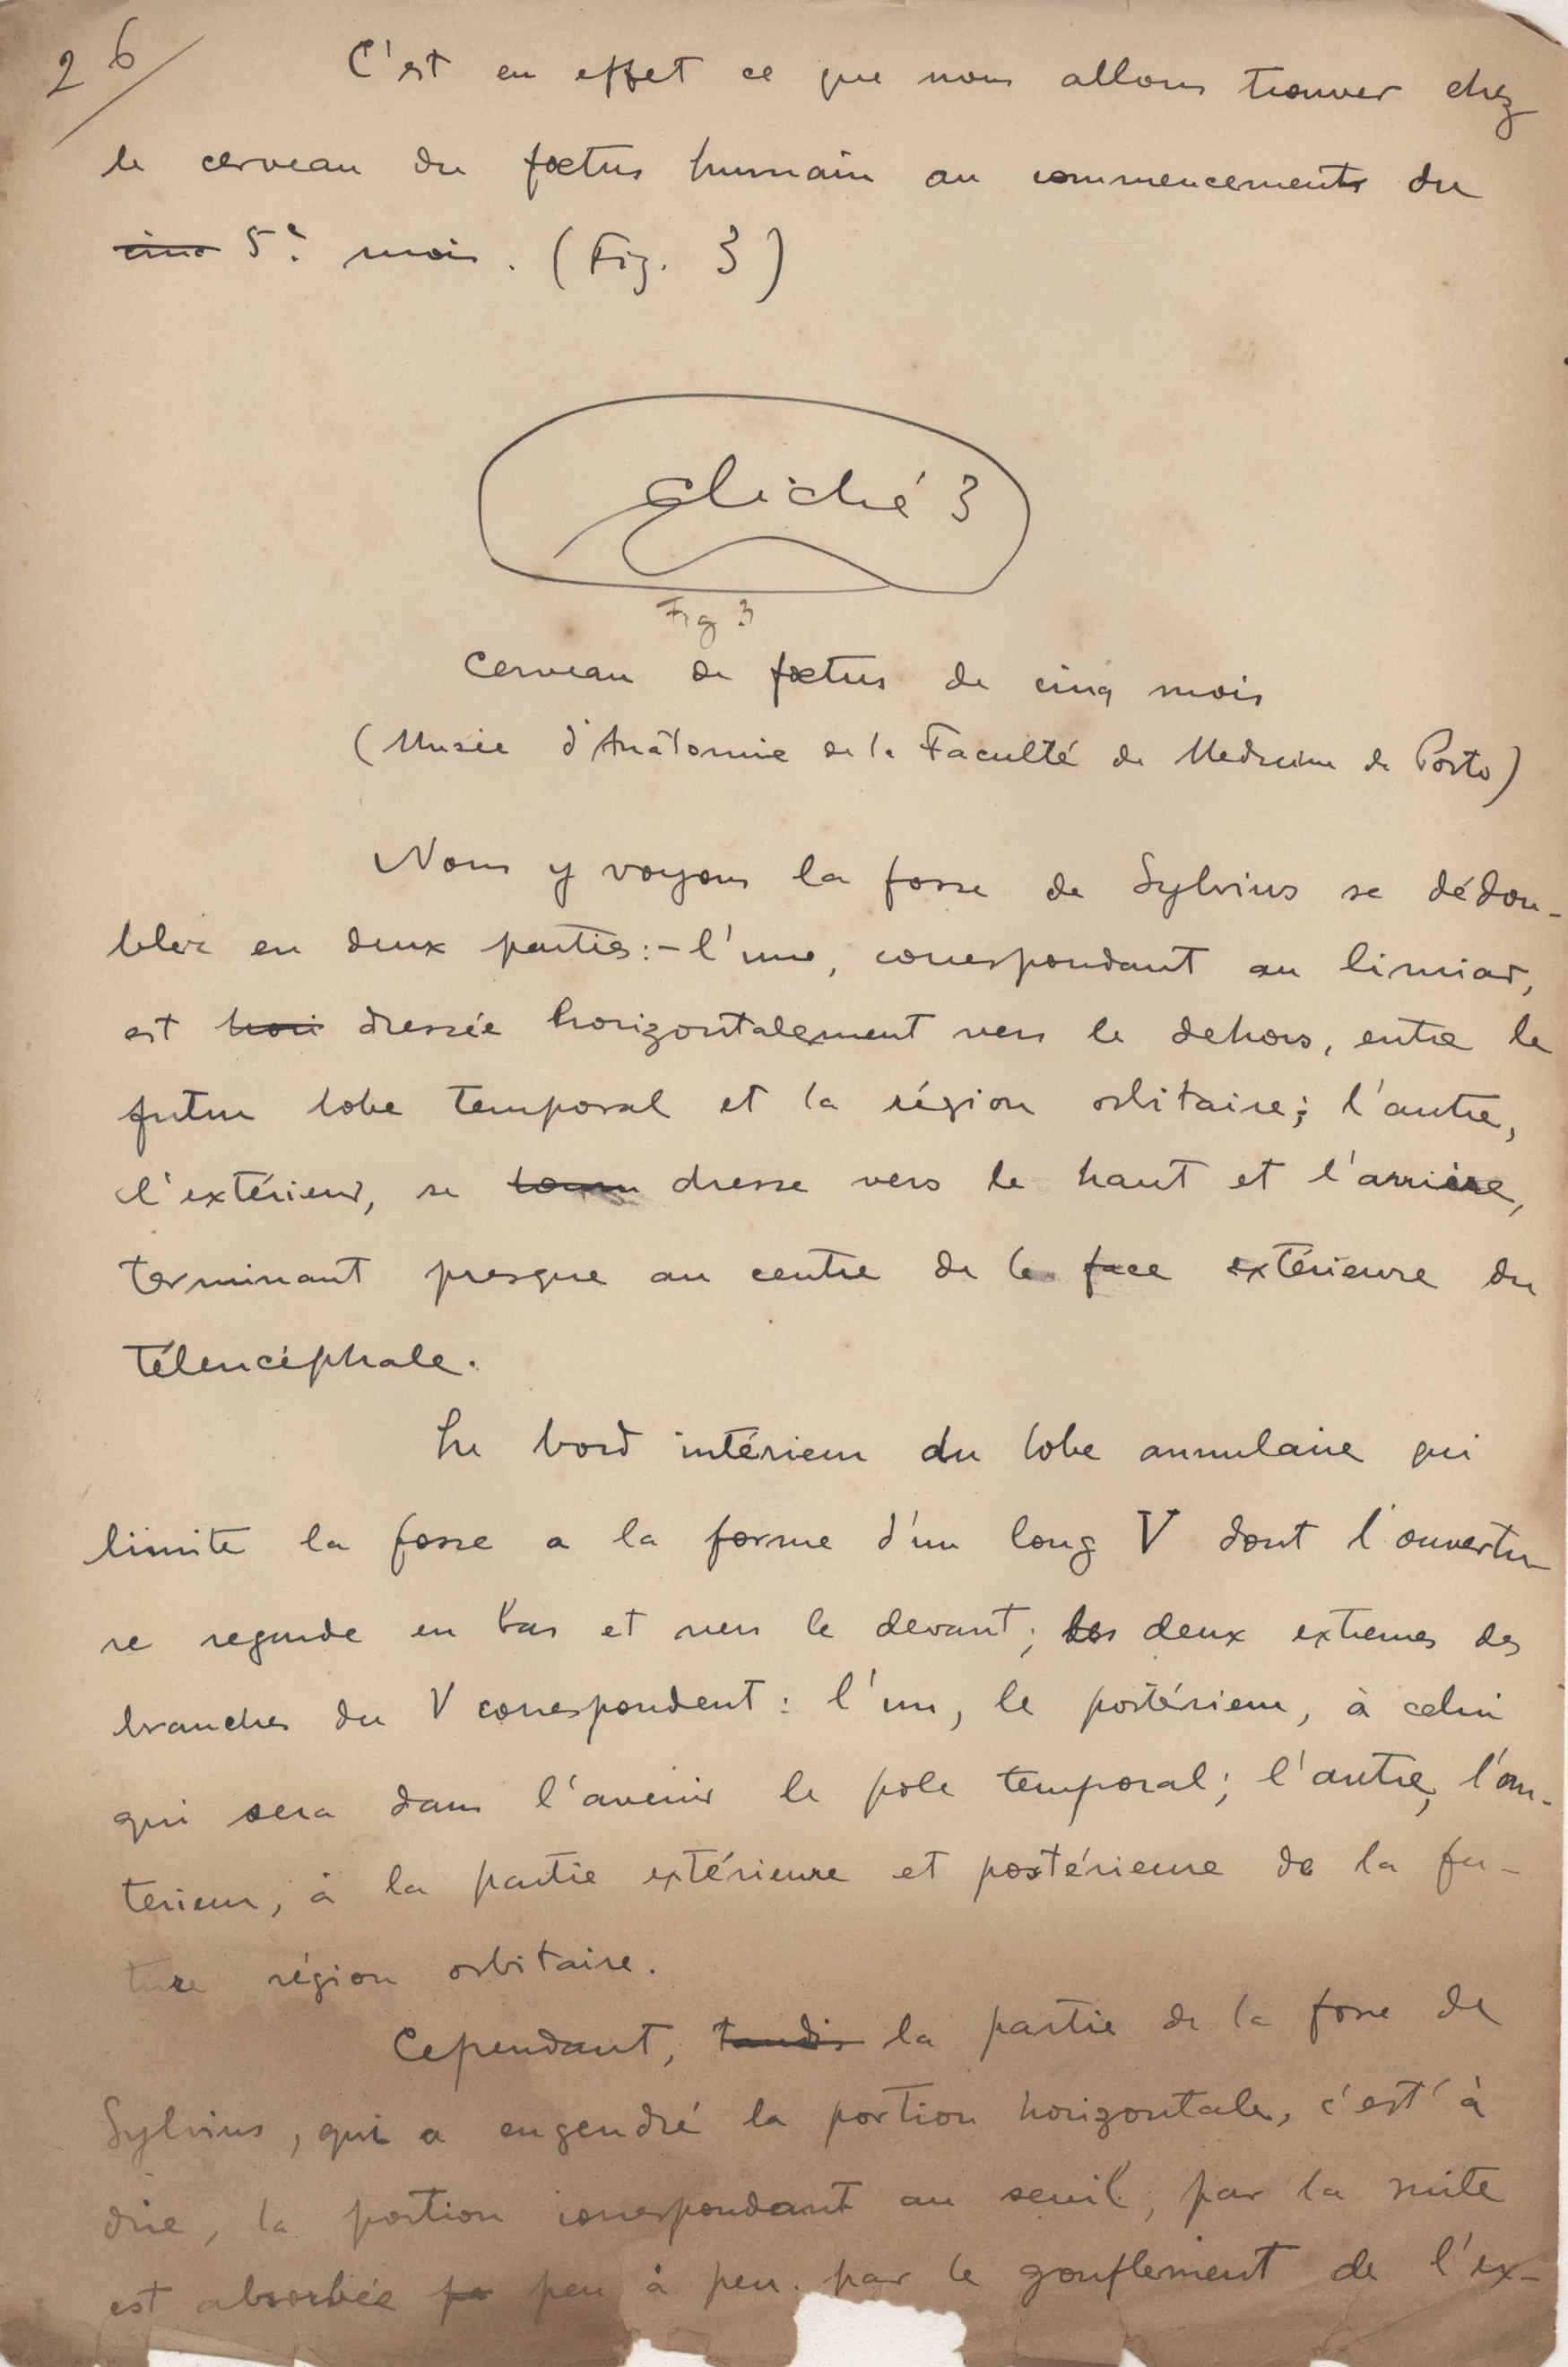 26/
C'est en effet ce que nous allons trouver chez
le cerveau du fœtus humain au commencement du
cinq 5e mois. (Fig. 3)
cliché 3
Fig 3
Cerveau de fœtus de cinq mois
(Musée d'Anatomie de la Faculté de Medecine de Porto)
Nous y voyons la fosse de Sylvius se dédou-
bler en deux parties:- l'une, correspondant au limiar,
est hori dressée horizontalement vers le dehors, entre le
futur lobe temporal et la région orbitaire; l'autre,
l'extérieur, se dresse vers le haut et l'arrière,
terminant presque au centre de la face extérieure du
télencéphale.
Le bord intérieur du lobe annulaire qui
limite la fosse a la forme d'un long V dont l'ouvertu-
re regarde en bas et vers le devant; les deux extremes des
branches du V correspondent: l'un, le postérieur, à celui
qui sera dans l'avenir le pole temporal; l'autre, l'an-
terieur, à la partie extérieure et postérieure de la fu-
ture région orbitaire.
Cependant, tandis la partie de la fosse de
Sylvius, qui a engendré la portion horizontale, c'est à
dire, la portion correspondant au seuil, par la suite
est absorbée pa peu à peu par le gonflement de l'ex-